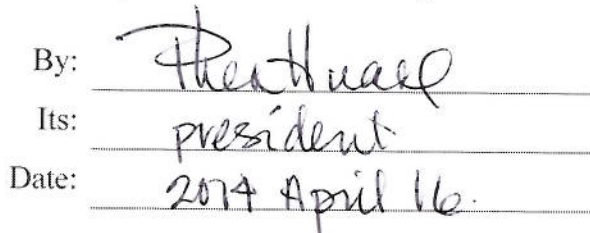 By:
Its: president
Date: 2014 April 16.